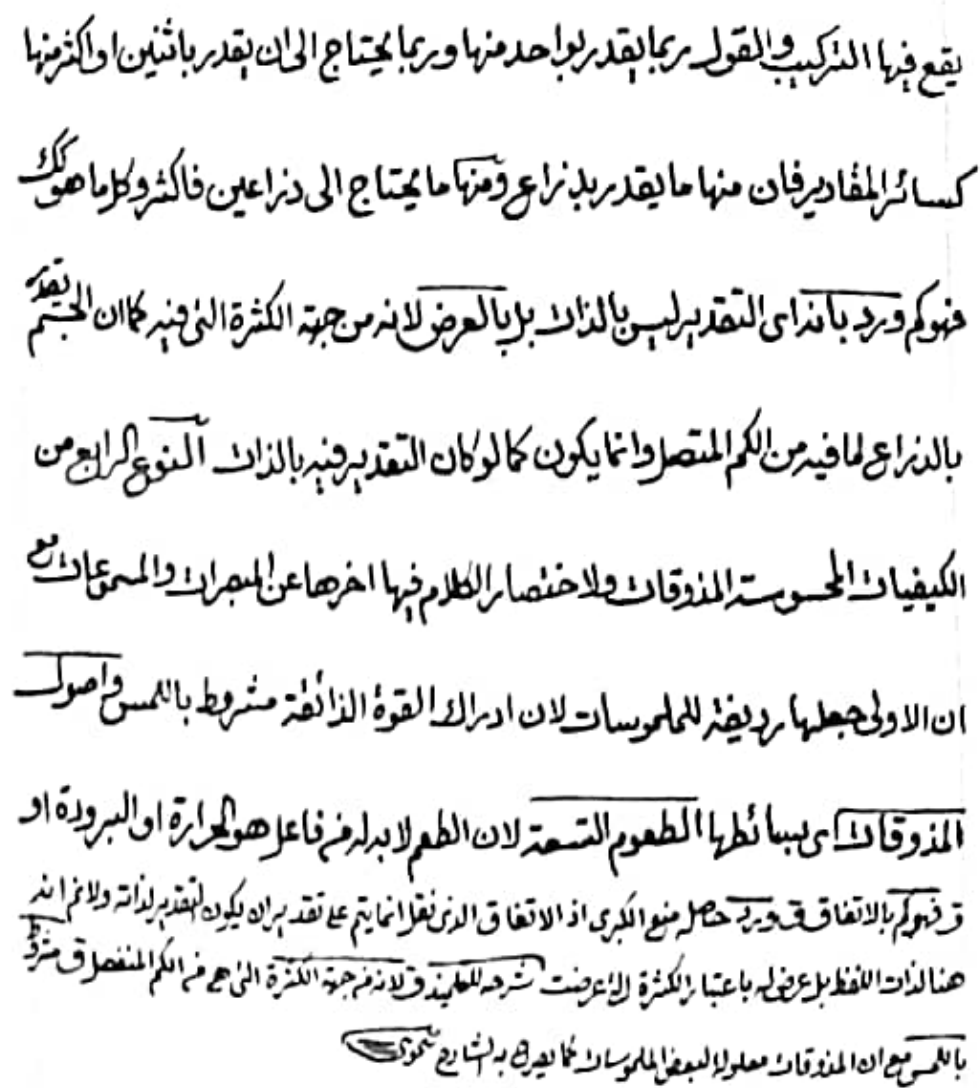 يقع فيها التركيب والقول ربما يقدر بواحد منها وربما يحتاج الى ان يقدر باثنين او اكثر منها
كسائر المقادير فان منها ما يقدر بذراع ومنها ما يحتاج الى ذراعين فاكثر وكل ما هو كك
فهو كم ورد بانه اى التقدير ليس بالذات بل بالعرض لانه من جهة الكثرة التى فيه كما ان الجسم يقدر
بالذراع لما فيه من الكم المتصل وانما يكون كما لو كان التقدير فيه بالذات النوع الرابع من
الكيفيات المحسوسة المذوقات ولاختصار الكلام فيها اخرها عن المبصرات والمسموعات مع
ان الاولى جعلها رديفة للملموسات لان ادراك القوة الذائقة مشروط باللمس واصول
المذوقات اى بسائطها الطعوم التسعة لان الطعم لا بد له من فاعل هو الحرارة او البرودة او
ق فهو كم بالاتفاق ق ويرد حاصله منع الكبرى اذ الاتفاق الذى نقل انما يتم على تقدير ان يكون التقدير لذاته ولا نم انه
هنا لذات اللفظ بل عرض له باعتبار الكثرة التى عرضت شرحه ق لانه من جهة الكثرة التى هى من الكم المنفصل ق مشروط
باللمس مع ان المذوقات معلولة لبعض الملموسات كما يصرح به الشارح